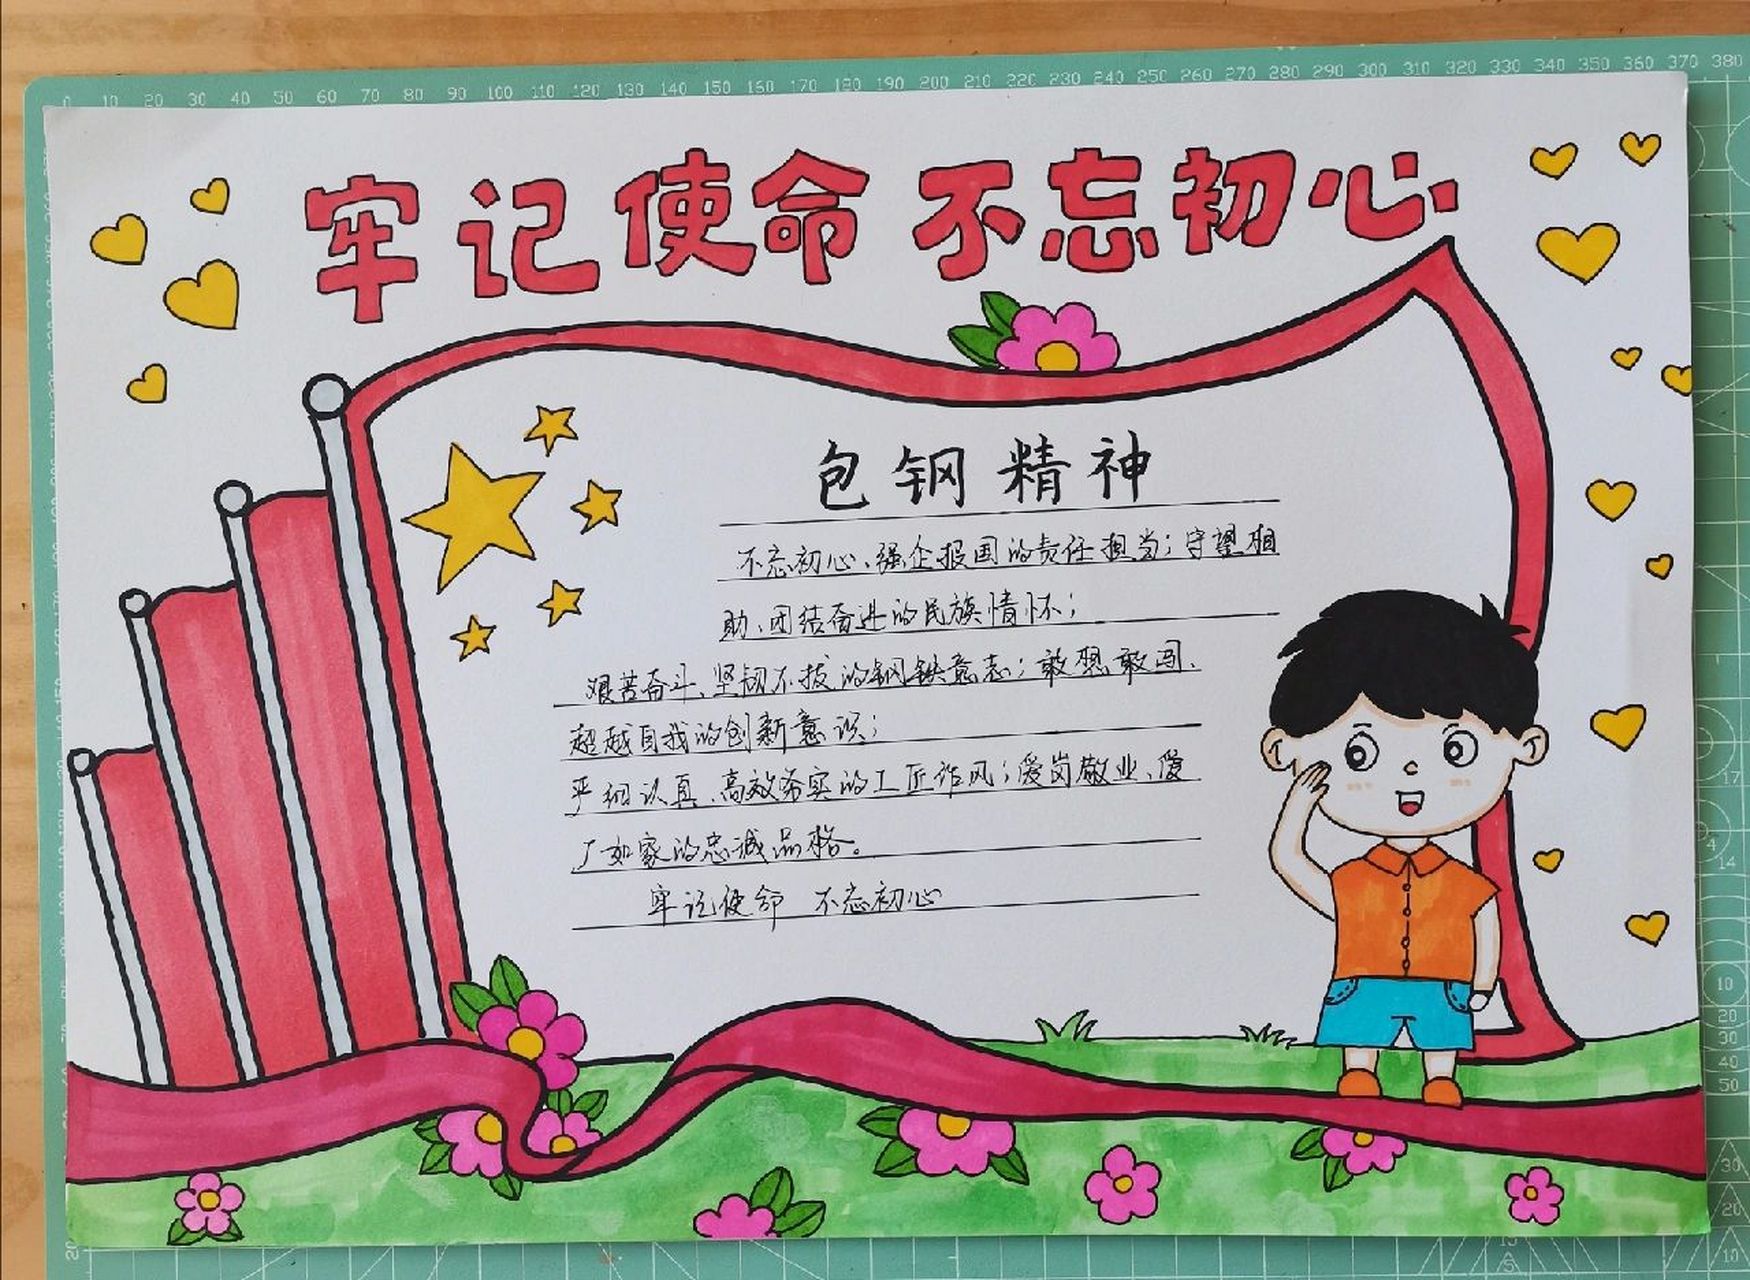 牢记使命 不忘初心
包钢精神
不忘初心、强企报国的责任担当；守望相
助、团结奋进的民族情怀；
艰苦奋斗、坚韧不拔的钢铁意志；敢想敢闯、
超越自我的创新意识；
严细认真、高效务实的工匠作风；爱岗敬业、爱
厂如家的忠诚品格。
牢记使命 不忘初心